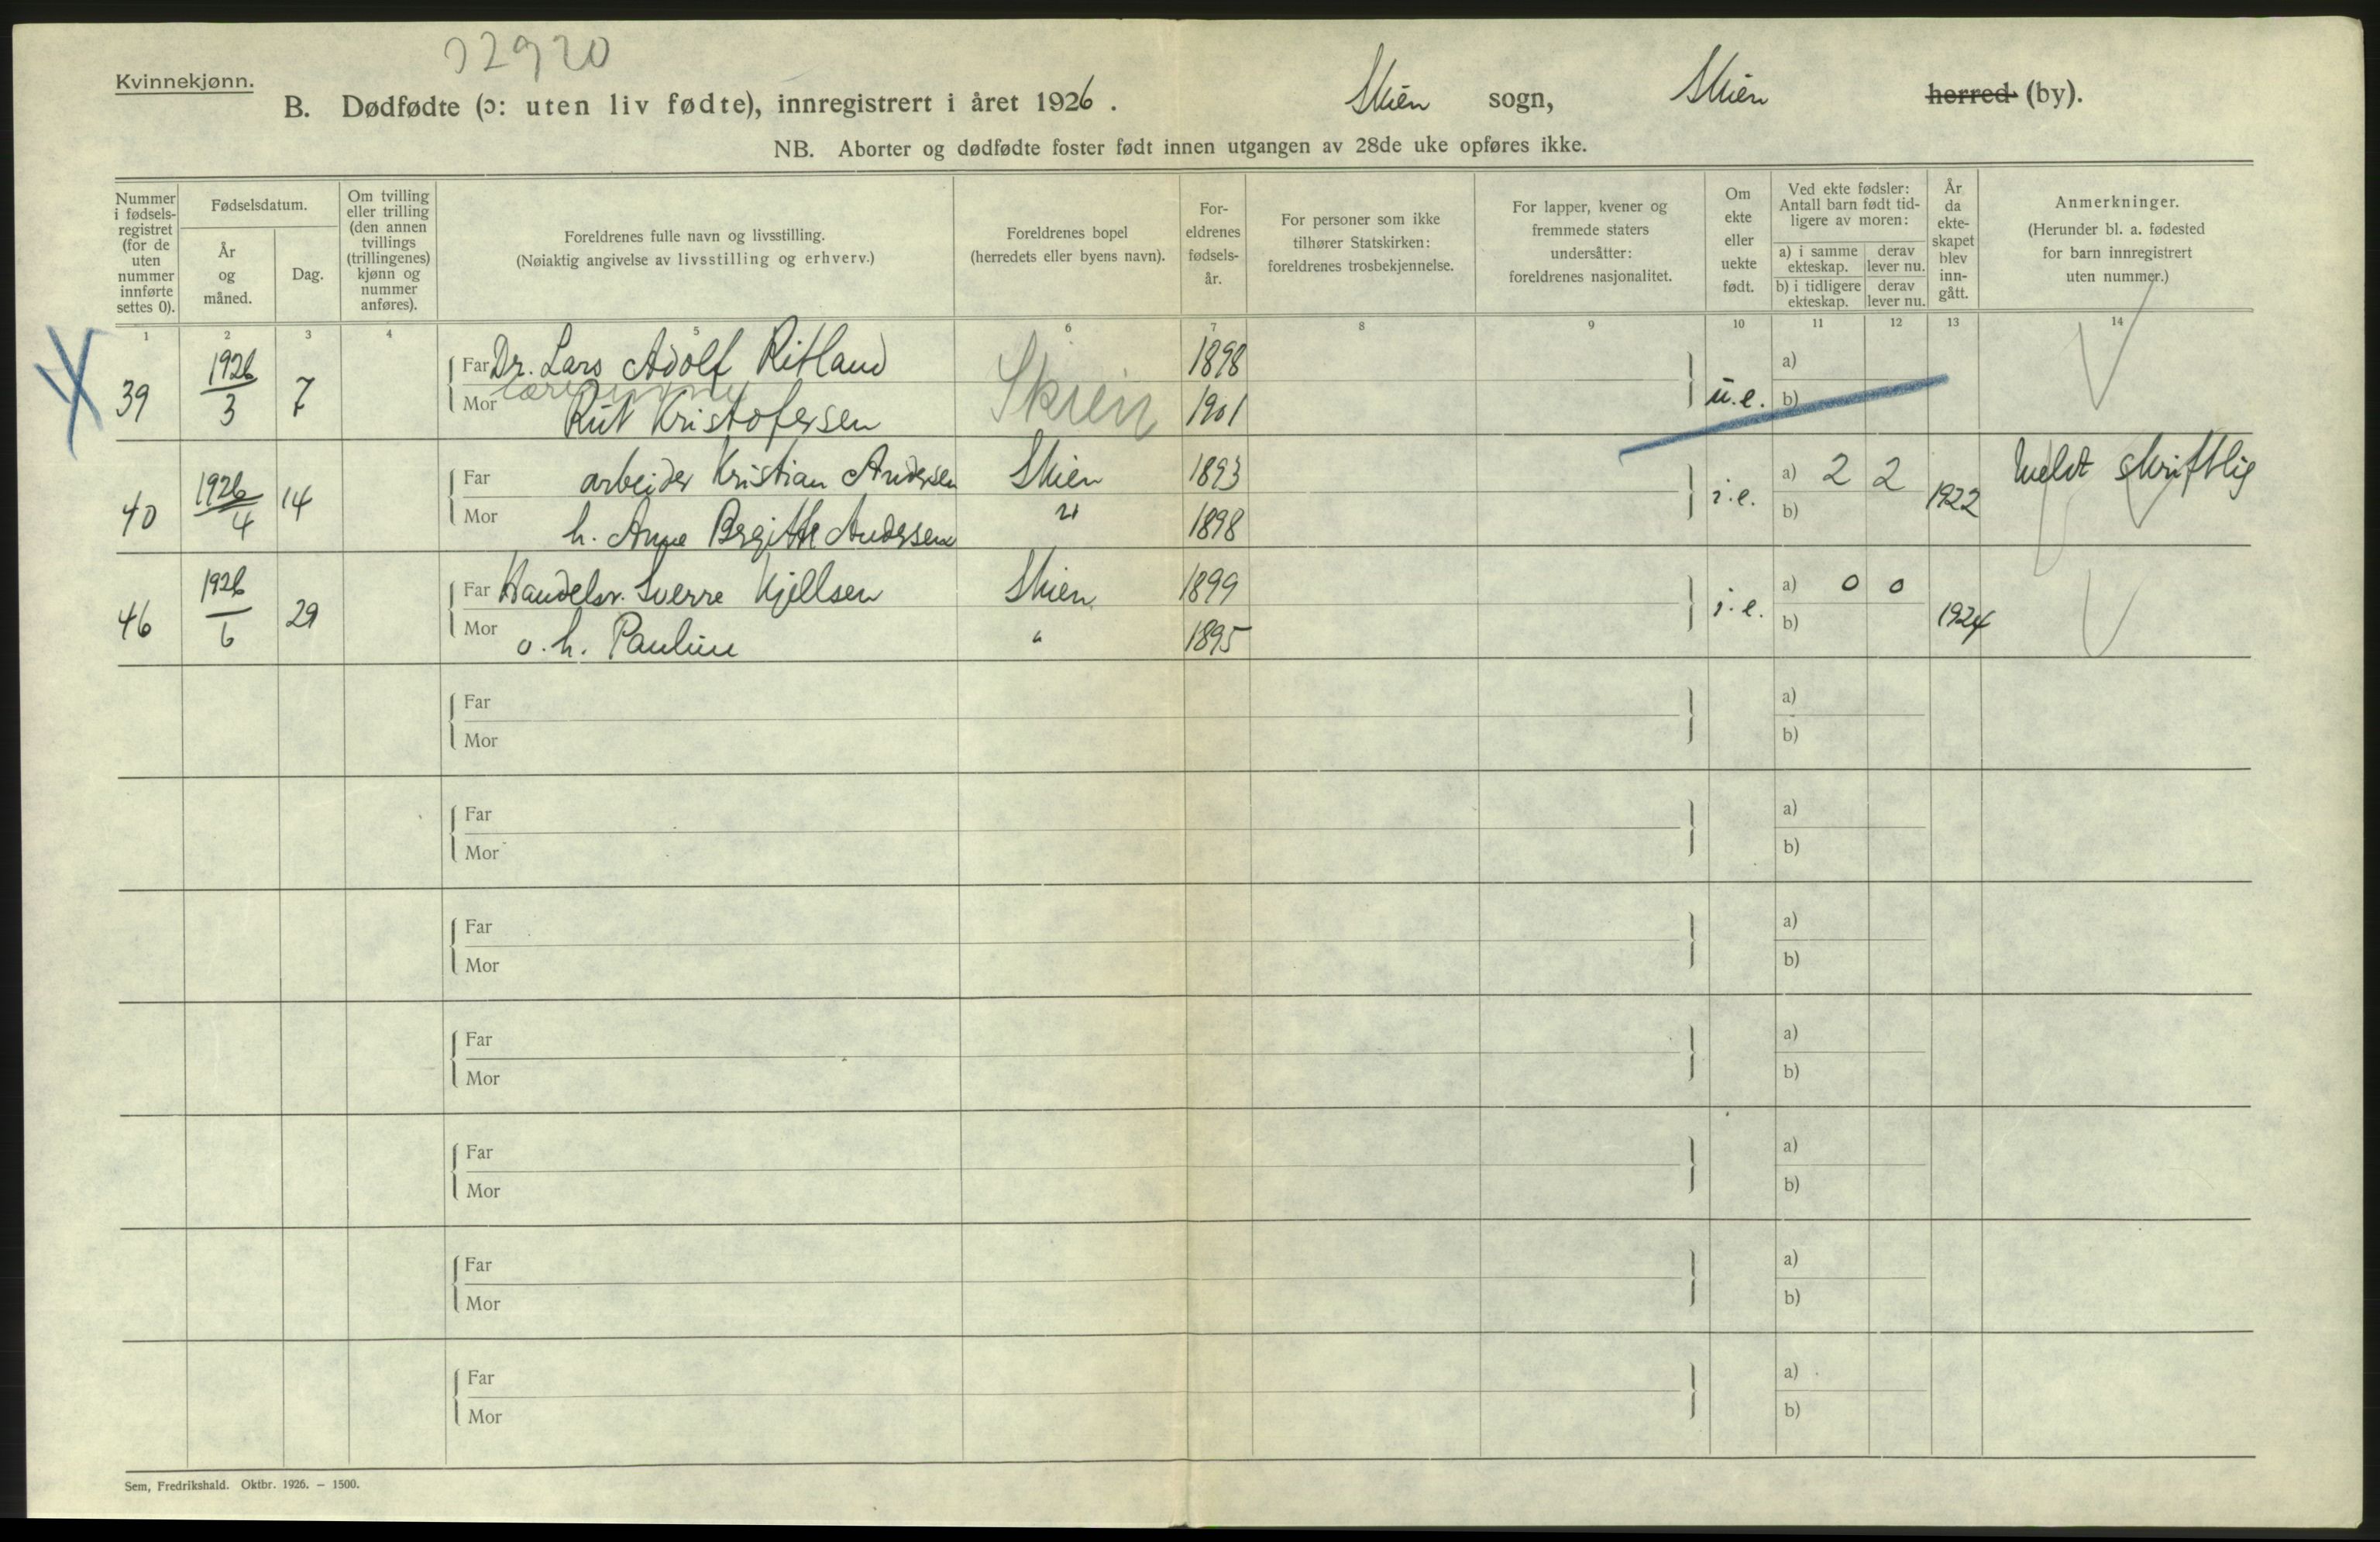 32920
Kvinnekjønn.
B. Dødfødte (ɔ: uten liv fødte), innregistrert i året 1926. Skien sogn, Skien herred (by).
NB. Aborter og dødfødte foster født innen utgangen av 28de uke opføres ikke.
Nummer i fødsels-registret (for de uten nummer innførte settes 0).
Fødselsdatum.
År og måned.
Dag.
Om tvilling eller trilling (den annen tvillings (trillingenes) kjønn og nummer anføres).
Foreldrenes fulle navn og livsstilling.
(Nøiaktig angivelse av livsstilling og erhverv.)
Foreldrenes bopel
(herredets eller byens navn).
For-eldrenes fødsels-år.
For personer som ikke tilhører Statskirken: foreldrenes trosbekjennelse.
For lapper, kvener og fremmede staters undersåtter: foreldrenes nasjonalitet.
Om ekte eller uekte født.
Ved ekte fødsler: Antall barn født tid-ligere av moren:
a) i samme ekteskap. derav lever nu.
b) i tidligere ekteskap. derav lever nu.
År da ekte-skapet blev inn-gått.
Anmerkninger.
(Herunder bl. a. fødested for barn innregistrert uten nummer.)
1 2 3 4 5 6 7 8 9 10 11 12 13 14
39 1926/3 7 Far Dr. Lars Adolf Ritland Skien 1898 u.e. a)
Mor Rut Kristofersen 1901 b)
40 1926/4 14 Far arbeider Kristian Andersen Skien 1893 i.e. a) 2 2 1922 Meldt skriftlig
Mor h. Anne Bergitte Andersen " 1898 b)
46 1926/6 29 Far Handelsr. Sverre Kjellsen Skien 1899 i.e. a) 0 0 1924
Mor o. h. Pauline " 1895 b)
Far a)
Mor b)
Far a)
Mor b)
Far a)
Mor b)
Far a)
Mor b)
Far a)
Mor b)
Far a)
Mor b)
Far a)
Mor b)
Sem, Fredrikshald. Oktbr. 1926. – 1500.